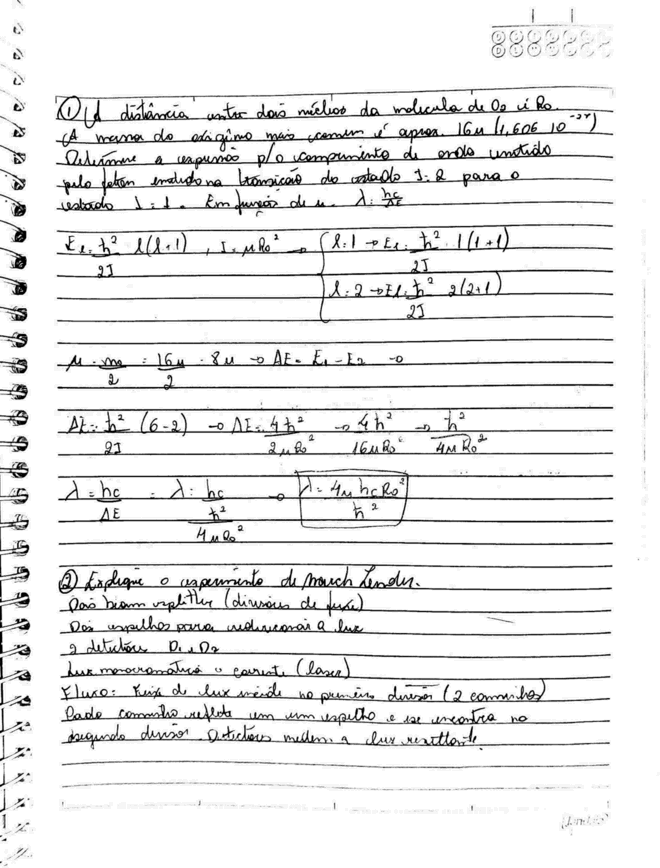 ① A distância entre dois núcleos da molecula de O2 é Ro.
(A massa do oxigênio mais comum é aprox. 16u (1,606 10⁻²⁷)
Determine a expressão p/o comprimento de onda emitido
pelo foton emitido na transição do estado J=2 para o
estado J=1. Em função de u. λ=hc/ΔE
El=ħ²/2I l(l+1), I=μRo² → { l=1 → El=ħ²/2I 1(1+1)
l=2 → El=ħ²/2I 2(2+1)
μ = mo/2 = 16u/2 = 8u → ΔE = E1 - E2 →
ΔE=ħ²/2I (6-2) → ΔE=4ħ²/2μRo² → 4ħ²/16uRo² → ħ²/4uRo²
λ=hc/ΔE = λ=hc/(ħ²/4uRo²) → λ=4u hcRo²/ħ²
② Explique o experimento de
Dois beam splitter (divisores de feixe)
Dois espelhos para redirecionar a luz
2 detectores D1 e D2
Luz monocromática e coerente (laser)
Fluxo: Feixe de luz incide no primeiro divisor (2 caminhos)
Cada caminho reflete em um espelho e se encontra no
segundo divisor. Detectores medem a luz resultante.